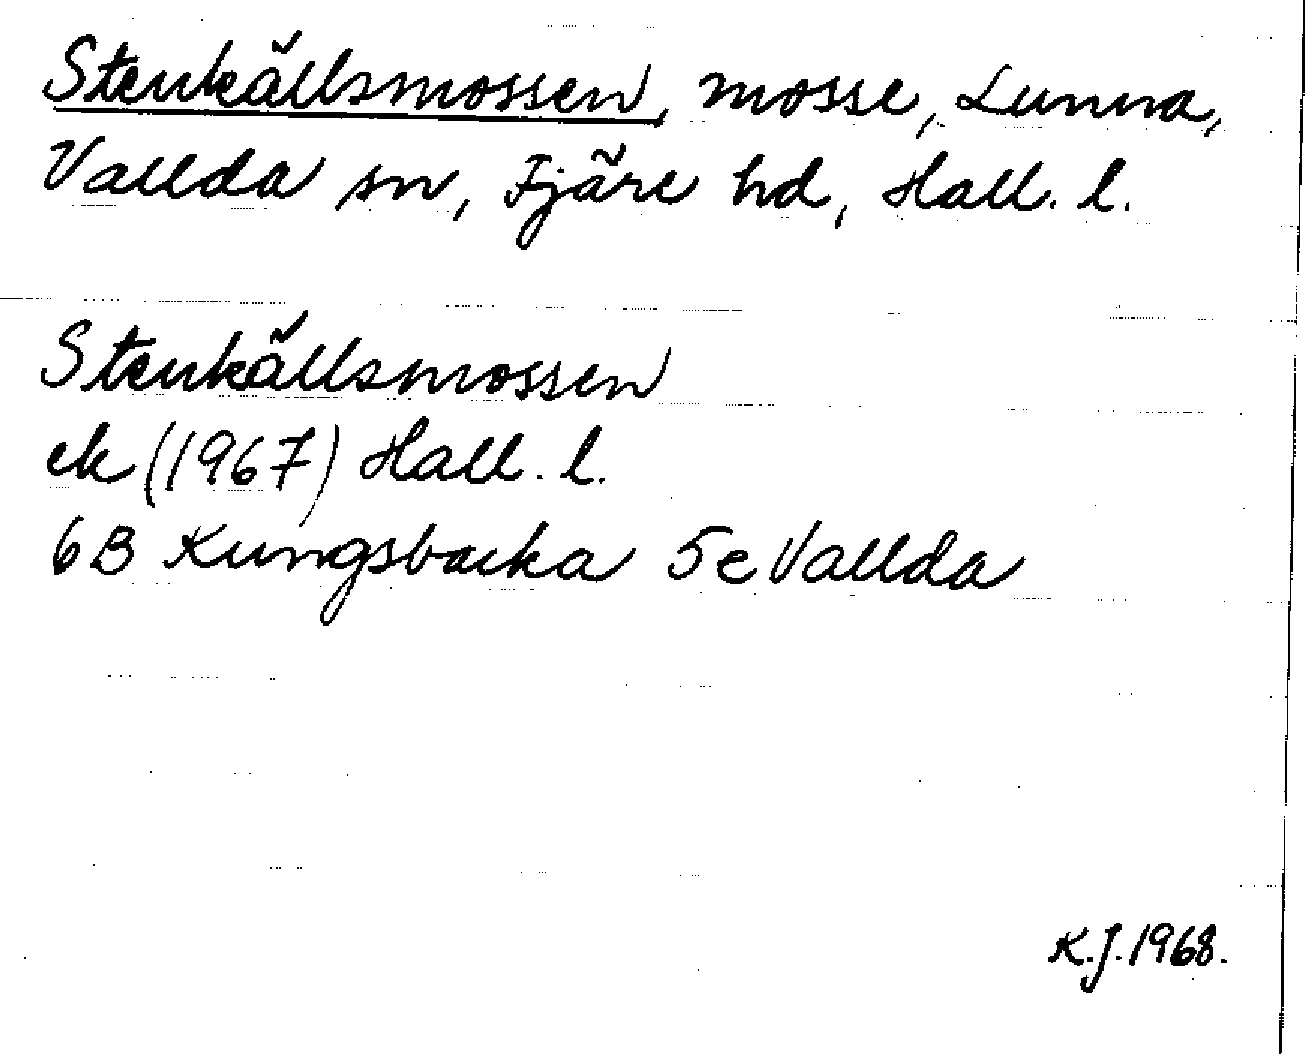 Stenkällsmossen, mosse, Lunna,
Vallda sn, Fjäre hd, Hall. l.
Stenkällsmossen
ek (1967) Hall. l.
6B Kungsbacka 5e Vallda
K.J. 1968.